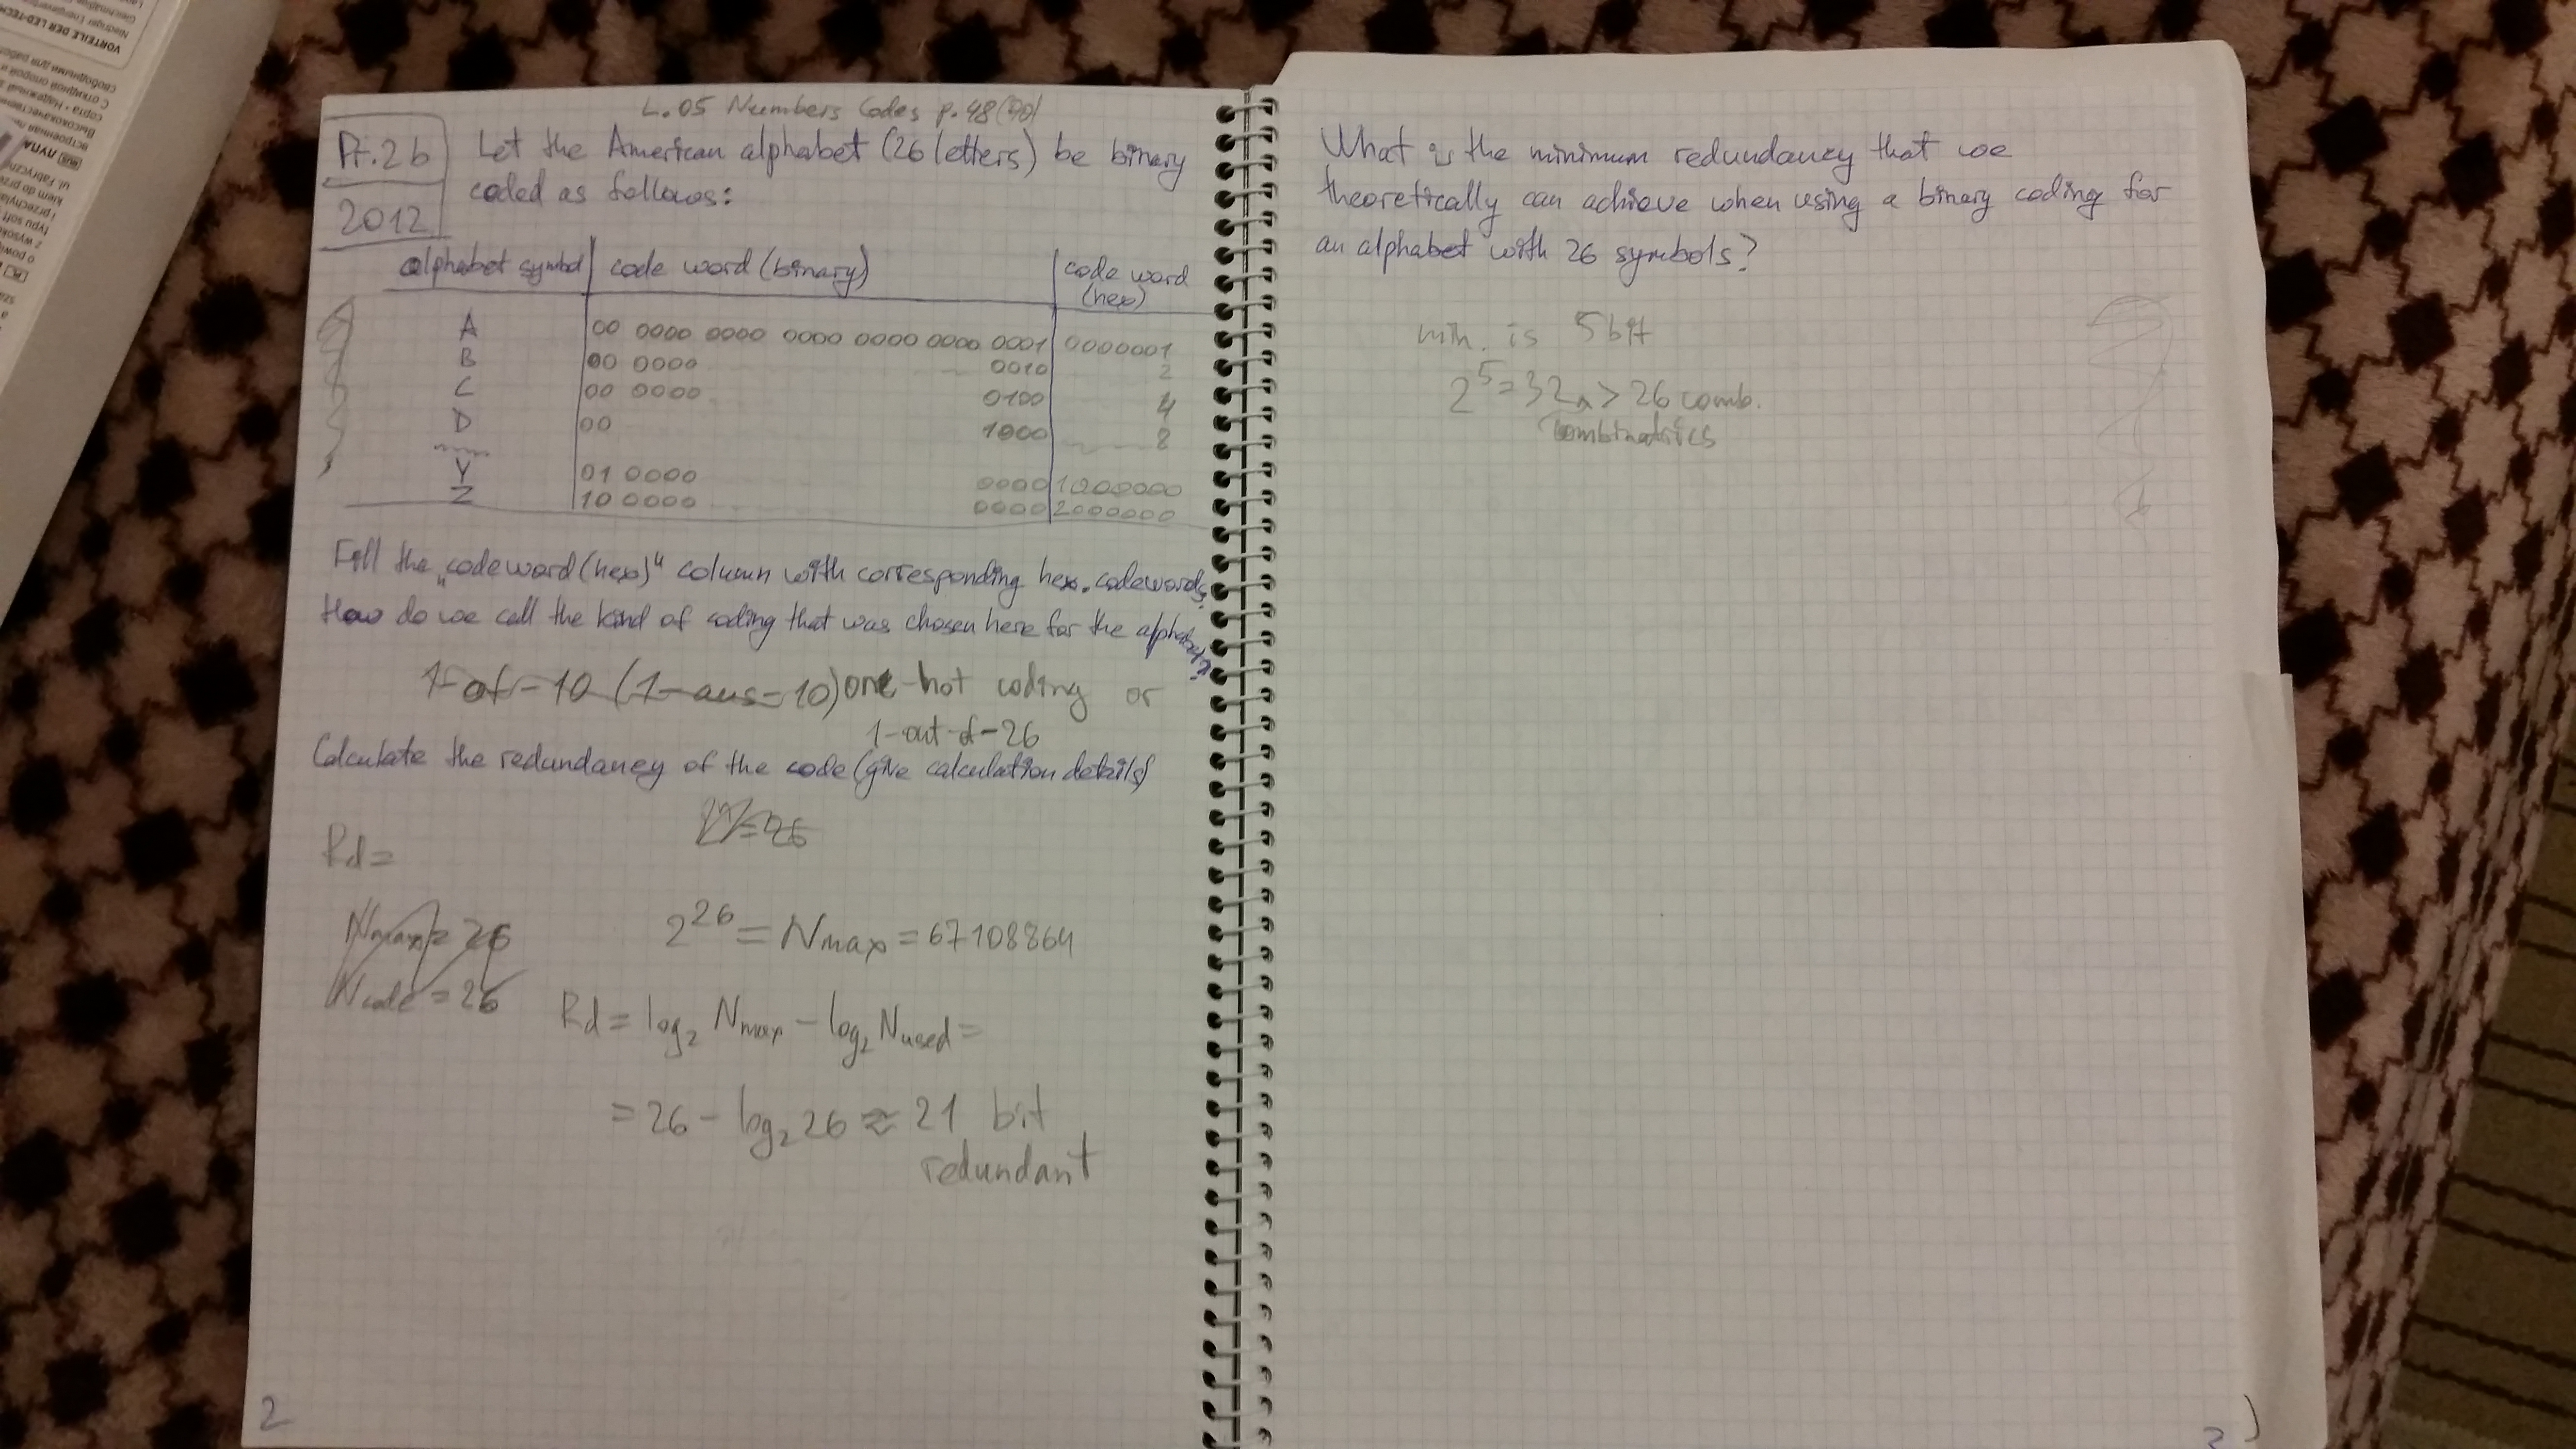 L.05 Numbers Codes p.48(70)
Pr.2b
2012
Let the American alphabet (26 letters) be binary
coded as follows:
alphabet symbol code word (binary) code word (hex)
A 00 0000 0000 0000 0000 0000 0001 0000001
B 00 0000 0010 2
C 00 0000 0100 4
D 00 1000 8
Y 01 0000 0000 1000000
Z 10 0000 0000 2000000
Fill the „codeword(hex)" column with corresponding hex. codewords.
How do we call the kind of coding that was chosen here for the alphabet?
1-of-10 (1-aus-10) one-hot coding or
1-out-of-26
Calculate the redundancy of the code (give calculation details)
2^n=26
Rd=
Nmax=26
Ncode=26
2^26 = Nmax = 67108864
Rd = log2 Nmax - log2 Nused =
= 26 - log2 26 ≈ 21 bit
redundant
2
What is the minimum redundancy that we
theoretically can achieve when using a binary coding for
an alphabet with 26 symbols?
min. is 5bit
2^5=32 > 26 comb.
combinatrics
VORTEILE DER LED-TECH
RUS ЛУПА